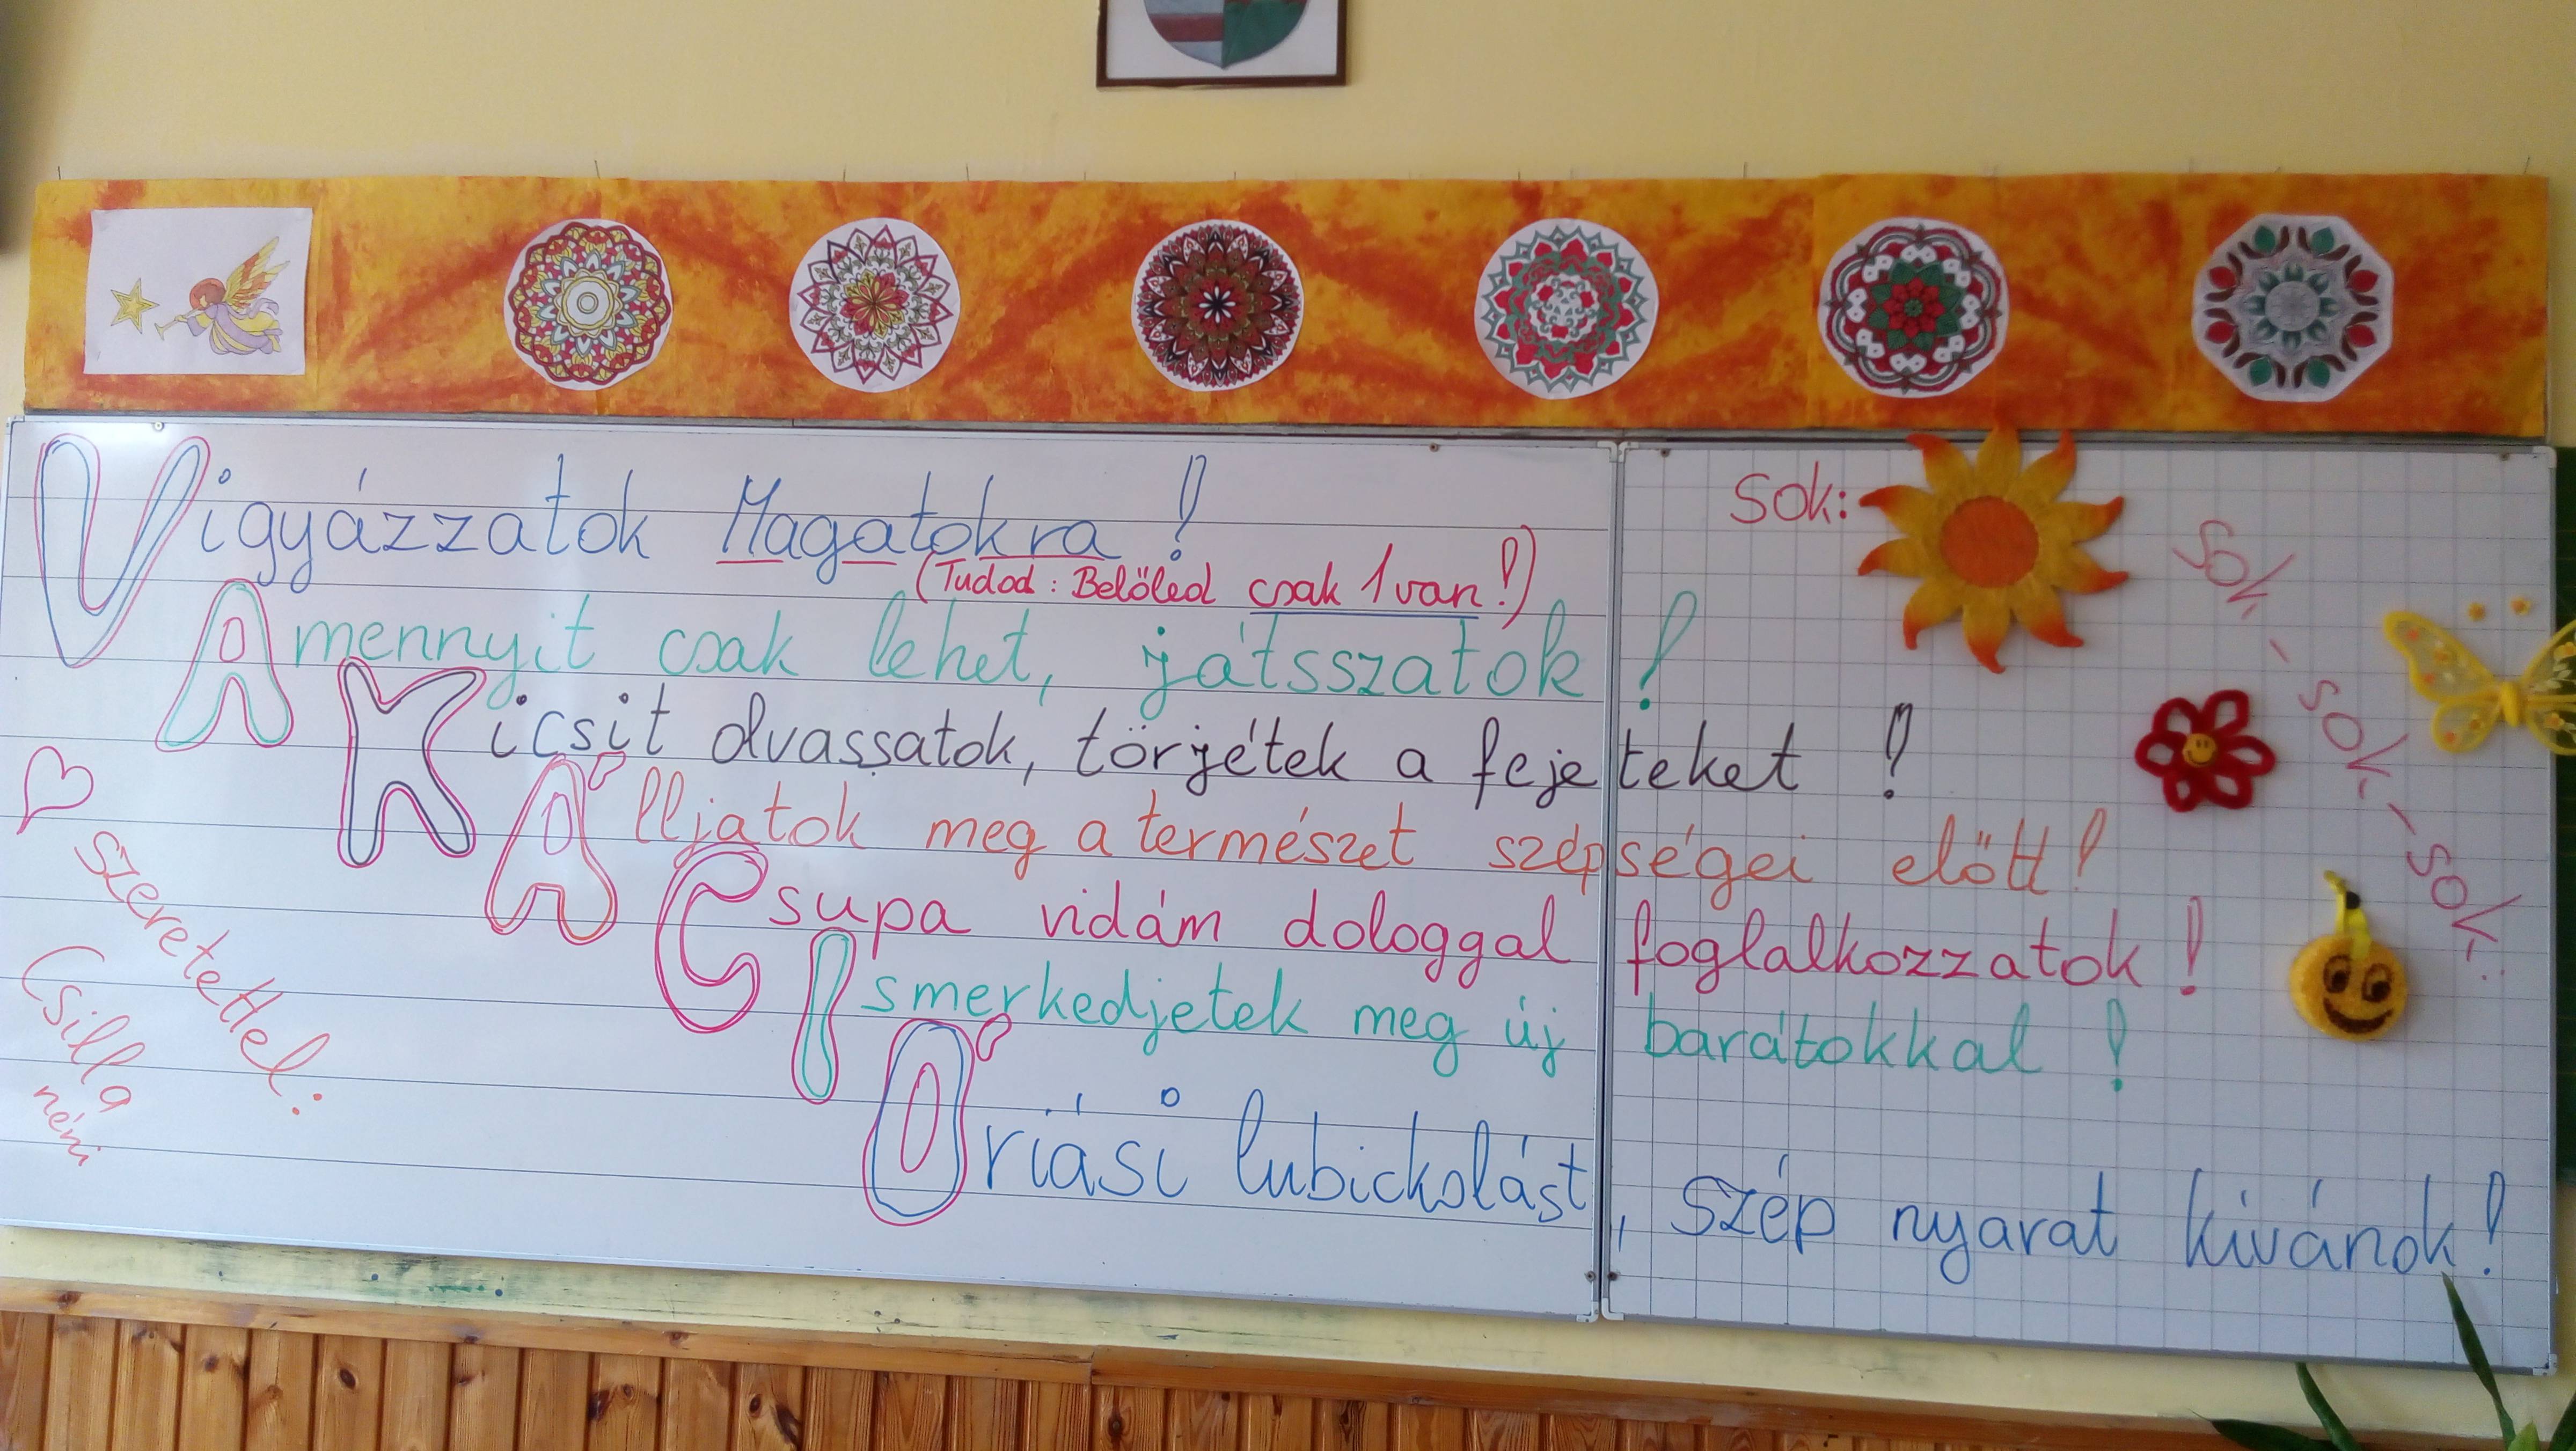 Vigyázzatok Magatokra!
(Tudod: Belőled csak 1 van!)
Amennyit csak lehet, játsszatok!
Kicsit olvassatok, törjétek a fejeteket!
Álljatok meg a természet szépségei előtt!
Csupa vidám dologgal foglalkozzatok!
Ismerkedjetek meg új barátokkal!
Óriási lubickolást, szép nyarat kívánok!
Szeretettel:
Csilla
néni
Sok:
sok - sok - sok